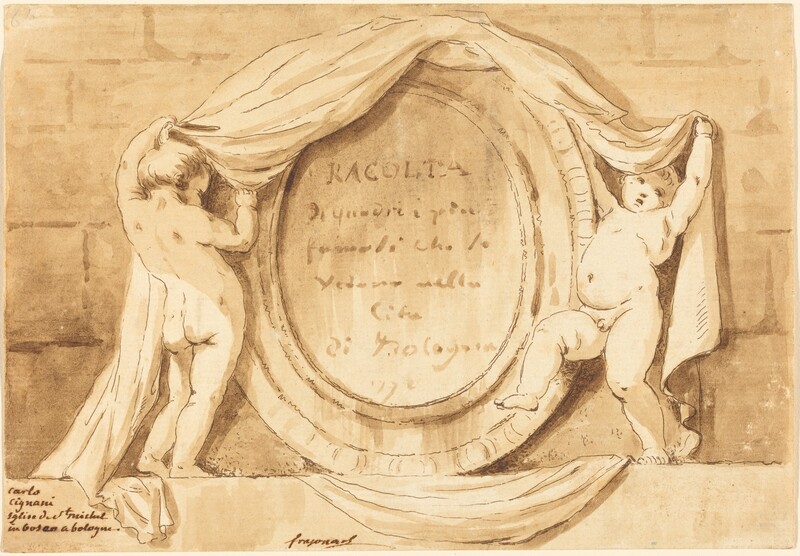 RACOLTA
di quadri i piu
famosi che si
vedano nella
Cita
di Bologna
carlo
cignani
église de St michel
in bosco a bologne.
fragonard